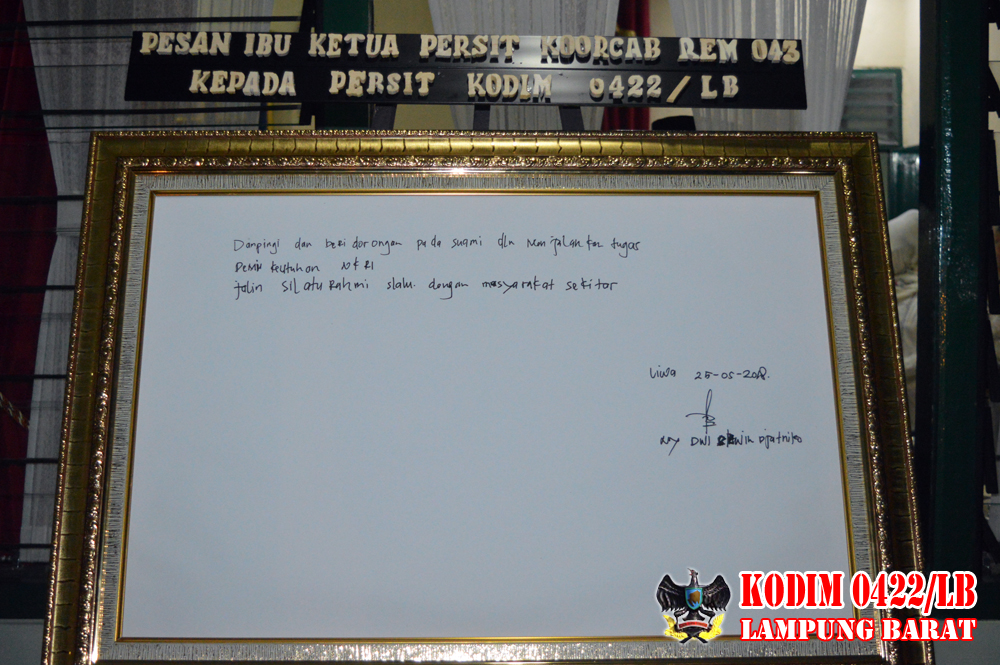 PESAN IBU KETUA PERSIT KOORCAB REM 043
KEPADA PERSIT KODIM 0422/LB
Dampingi dan beri dorongan pada suami dln menjalankan tugas
Demi keutuhan NKRI
Jalin SILatuRahmi slalu dengan masyarakat sekitar
Liwa 25-05-2018.
Ny Dwi
KODIM 0422/LB
LAMPUNG BARAT